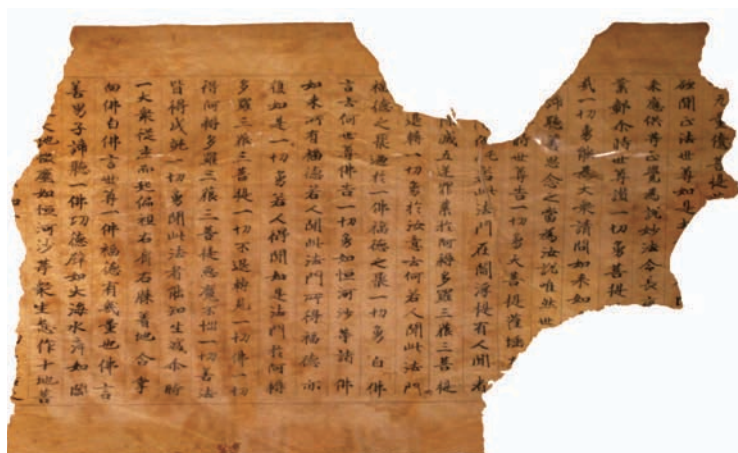 聞正法世尊如是
來應供等正覺為說妙法令長
業鄣尒時世尊讚一切勇菩提
哉一切勇能為大衆請問如來如
諦聽善思念之當為汝說唯然世
時世尊告一切勇大菩提薩埵
此法門在閻浮提有人聞者
滅五逆罪業於阿耨多羅三藐三菩提
退轉一切勇於汝意云何若人聞此法門
福德之聚過於一佛福德之聚一切勇白佛
言云何世尊佛告一切勇如恒河沙等諸佛
如來所有福德若人聞此法門所得福德亦
復如是一切勇若人得聞如是法門於阿耨
多羅三藐三菩提一切不退轉見一切佛一切
得阿耨多羅三藐三菩提惡魔不惱一切善法
皆得成就一切勇聞此法者能知生滅尒時
一大衆從坐而起偏袒右肩右膝著地合掌
向佛白佛言世尊一佛福德有幾量也佛言
善男子諦聽一佛功德譬如大海水渧如閻
地微塵如恒河沙等衆生悉作十地菩